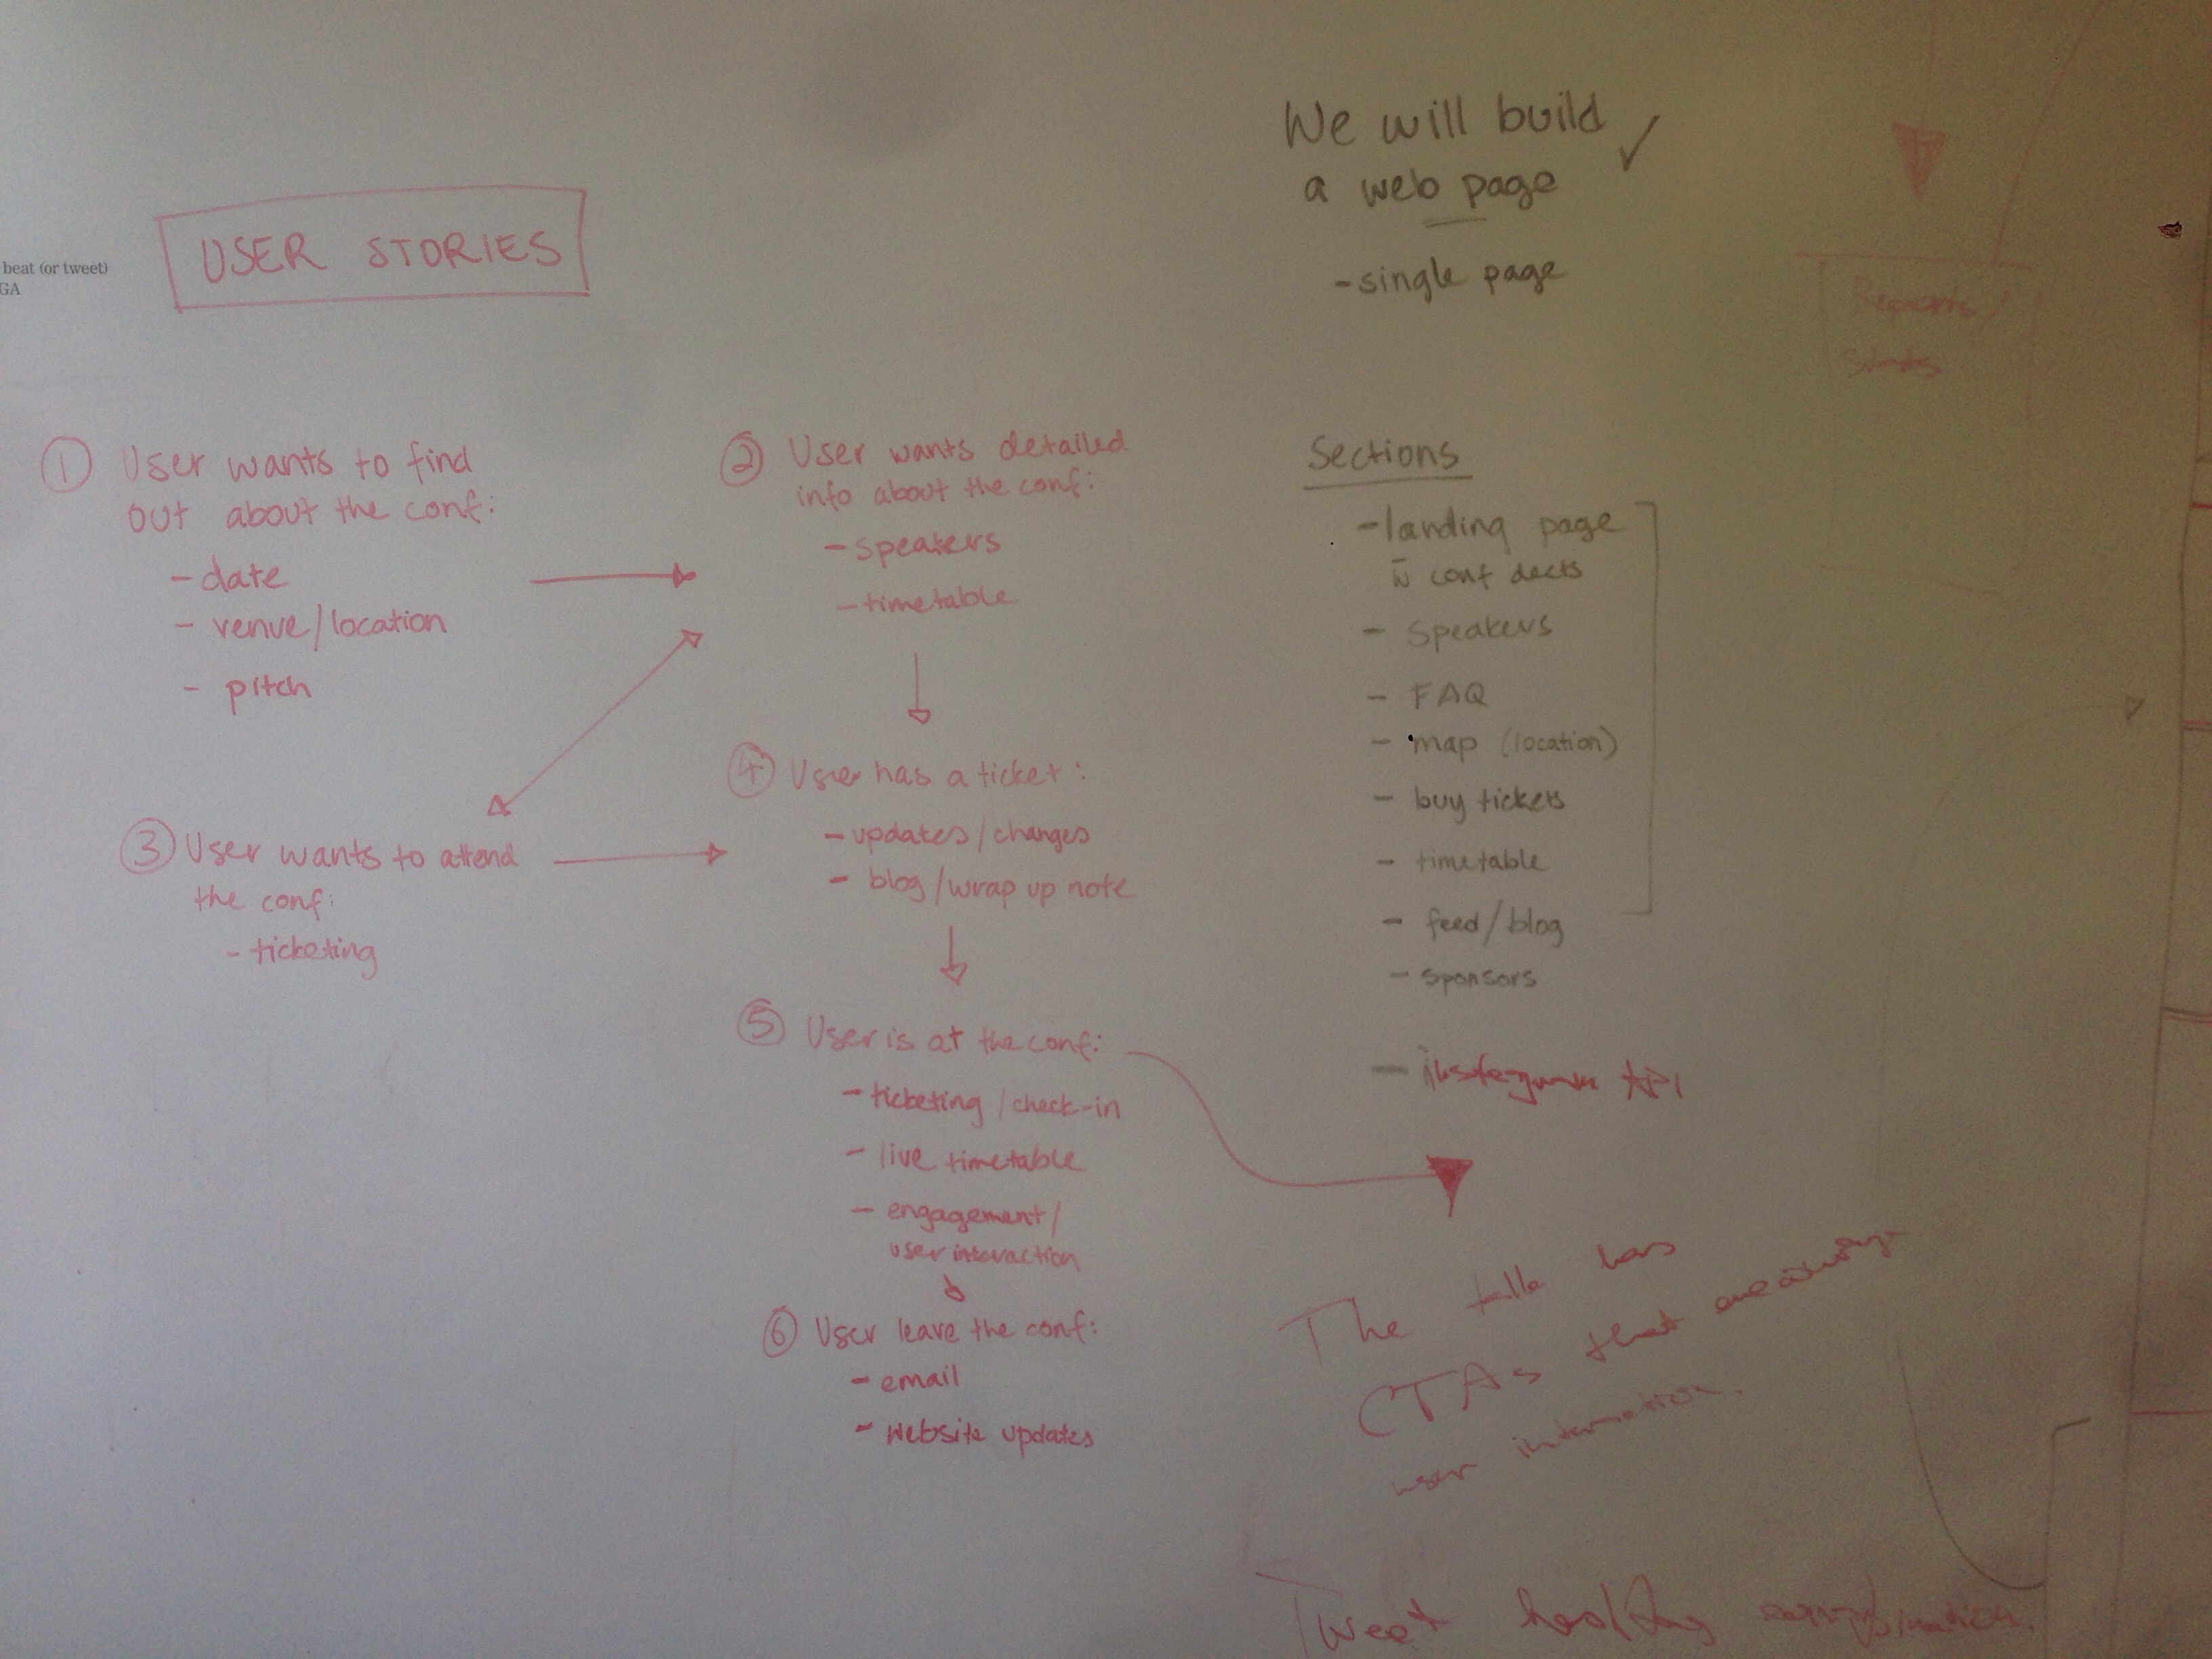 beat (or tweet)
GA
USER STORIES
① User wants to find
out about the conf:
- date
- venue/location
- pitch
② User wants detailed
info about the conf:
- speakers
- timetable
③ User wants to attend
the conf:
- ticketing
④ User has a ticket:
- updates/changes
- blog/wrap up note
⑤ User is at the conf:
- ticketing/check-in
- live timetable
- engagement/
user interaction
⑥ User leave the conf:
- email
- website updates
We will build
a web page ✓
- single page
Sections
- landing page
w̄ conf
- speakers
- FAQ
- map (location)
- buy tickets
- timetable
- feed/blog
- sponsors
- instagram API
The talk has
CTAs that
user interaction.
Tweet